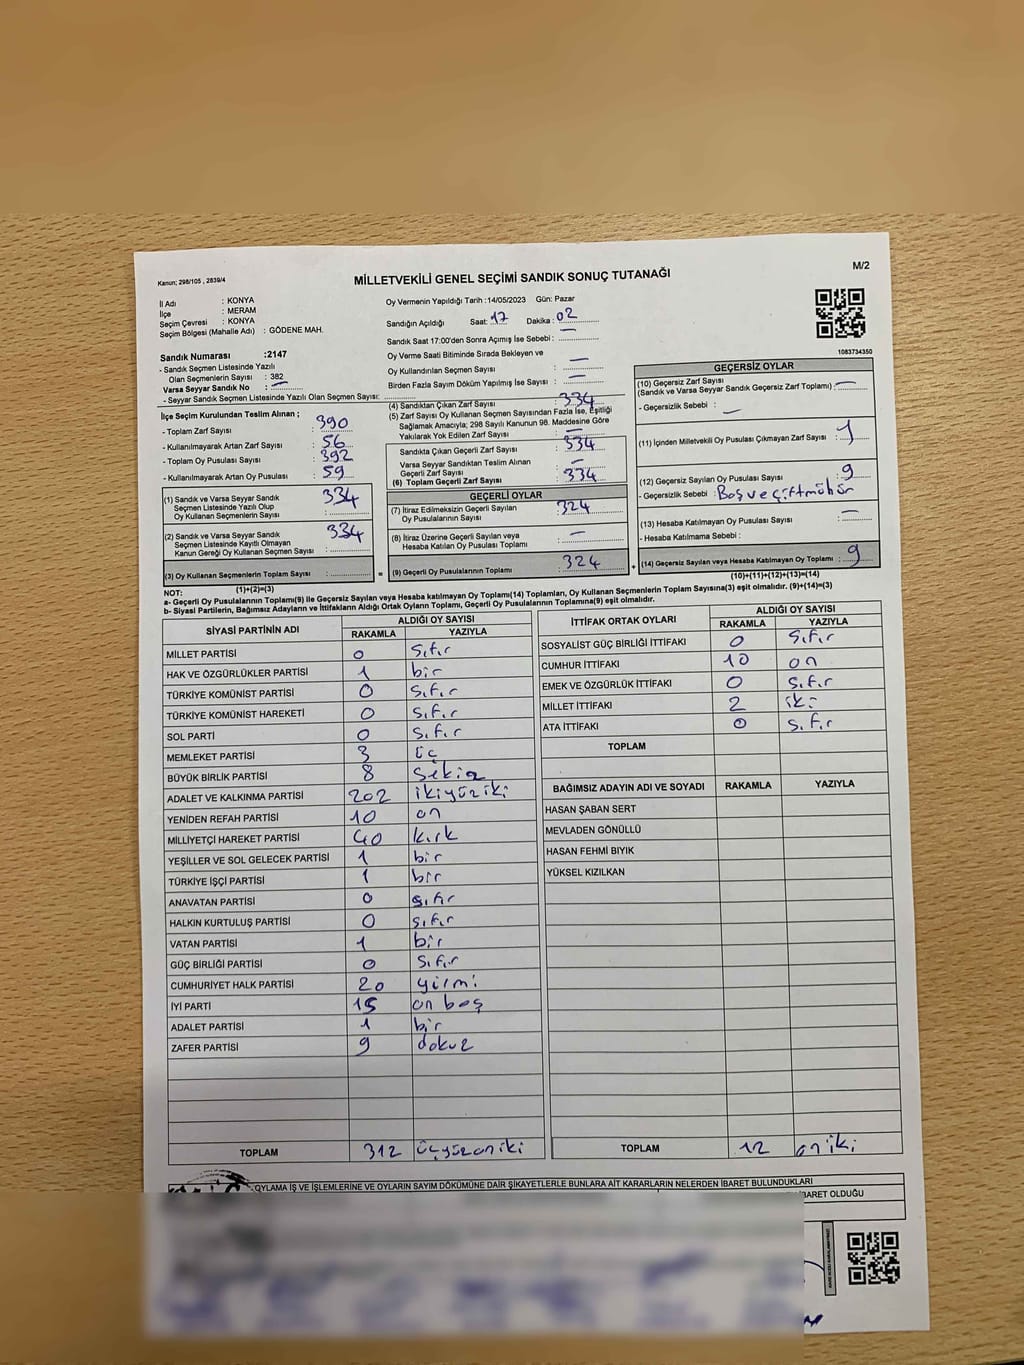 Kanun; 298/105 , 2839/4
MİLLETVEKİLİ GENEL SEÇİMİ SANDIK SONUÇ TUTANAĞI
M/2
İl Adı : KONYA
İlçe : MERAM
Seçim Çevresi : KONYA
Seçim Bölgesi (Mahalle Adı) : GÖDENE MAH.
Oy Vermenin Yapıldığı Tarih :14/05/2023 Gün: Pazar
Sandığın Açıldığı Saat: 17 Dakika : 02
Sandık Saat 17:00'den Sonra Açımış İse Sebebi : —
Oy Verme Saati Bitiminde Sırada Bekleyen ve
Oy Kullandırılan Seçmen Sayısı : —
Birden Fazla Sayım Döküm Yapılmış İse Sayısı : —
1083734350
Sandık Numarası :2147
- Sandık Seçmen Listesinde Yazılı
Olan Seçmenlerin Sayısı : 382
Varsa Seyyar Sandık No : —
- Seyyar Sandık Seçmen Listesinde Yazılı Olan Seçmen Sayısı:
İlçe Seçim Kurulundan Teslim Alınan ;
- Toplam Zarf Sayısı : 390
- Kullanılmayarak Artan Zarf Sayısı : 56
- Toplam Oy Pusulası Sayısı : 392
- Kullanılmayarak Artan Oy Pusulası : 59
(1) Sandık ve Varsa Seyyar Sandık
Seçmen Listesinde Yazılı Olup
Oy Kullanan Seçmenlerin Sayısı : 334
(2) Sandık ve Varsa Seyyar Sandık
Seçmen Listesinde Kayıtlı Olmayan
Kanun Gereği Oy Kullanan Seçmen Sayısı : 334
(3) Oy Kullanan Seçmenlerin Toplam Sayısı :
(1)+(2)=(3)
(4) Sandıktan Çıkan Zarf Sayısı : 334
(5) Zarf Sayısı Oy Kullanan Seçmen Sayısından Fazla İse, Eşitliği
Sağlamak Amacıyla; 298 Sayılı Kanunun 98. Maddesine Göre
Yakılarak Yok Edilen Zarf Sayısı : —
Sandıkta Çıkan Geçerli Zarf Sayısı : 334
Varsa Seyyar Sandıktan Teslim Alınan
Geçerli Zarf Sayısı : —
(6) Toplam Geçerli Zarf Sayısı : 334
GEÇERLİ OYLAR
(7) İtiraz Edilmeksizin Geçerli Sayılan
Oy Pusulalarının Sayısı : 324
(8) İtiraz Üzerine Geçerli Sayılan veya
Hesaba Katılan Oy Pusulaları Toplamı : —
= (9) Geçerli Oy Pusulalarının Toplamı : 324
GEÇERSİZ OYLAR
(10) Geçersiz Zarf Sayısı
(Sandık ve Varsa Seyyar Sandık Geçersiz Zarf Toplamı) : —
- Geçersizlik Sebebi : —
(11) İçinden Milletvekili Oy Pusulası Çıkmayan Zarf Sayısı : 1
(12) Geçersiz Sayılan Oy Pusulası Sayısı : 9
- Geçersizlik Sebebi : Boş ve çift mühür
(13) Hesaba Katılmayan Oy Pusulası Sayısı : —
- Hesaba Katılmama Sebebi :
+ (14) Geçersiz Sayılan veya Hesaba Katılmayan Oy Toplamı : 9
(10)+(11)+(12)+(13)=(14)
NOT:
a- Geçerli Oy Pusulalarının Toplamı(9) ile Geçersiz Sayılan veya Hesaba katılmayan Oy Toplamı(14) Toplamları, Oy Kullanan Seçmenlerin Toplam Sayısına(3) eşit olmalıdır. (9)+(14)=(3)
b- Siyasi Partilerin, Bağımsız Adayların ve İttifakların Aldığı Ortak Oyların Toplamı, Geçerli Oy Pusulalarının Toplamına(9) eşit olmalıdır.
SİYASİ PARTİNİN ADI ALDIĞI OY SAYISI
RAKAMLA YAZIYLA
MİLLET PARTİSİ 0 Sıfır
HAK VE ÖZGÜRLÜKLER PARTİSİ 1 bir
TÜRKİYE KOMÜNİST PARTİSİ 0 Sıfır
TÜRKİYE KOMÜNİST HAREKETİ 0 Sıfır
SOL PARTİ 0 Sıfır
MEMLEKET PARTİSİ 3 üç
BÜYÜK BİRLİK PARTİSİ 8 Sekiz
ADALET VE KALKINMA PARTİSİ 202 ikiyüziki
YENİDEN REFAH PARTİSİ 10 on
MİLLİYETÇİ HAREKET PARTİSİ 40 kırk
YEŞİLLER VE SOL GELECEK PARTİSİ 1 bir
TÜRKİYE İŞÇİ PARTİSİ 1 bir
ANAVATAN PARTİSİ 0 sıfır
HALKIN KURTULUŞ PARTİSİ 0 sıfır
VATAN PARTİSİ 1 bir
GÜÇ BİRLİĞİ PARTİSİ 0 Sıfır
CUMHURİYET HALK PARTİSİ 20 yirmi
İYİ PARTİ 15 on beş
ADALET PARTİSİ 1 bir
ZAFER PARTİSİ 9 dokuz
TOPLAM 312 üçyüzoniki
İTTİFAK ORTAK OYLARI ALDIĞI OY SAYISI
RAKAMLA YAZIYLA
SOSYALİST GÜÇ BİRLİĞİ İTTİFAKI 0 Sıfır
CUMHUR İTTİFAKI 10 on
EMEK VE ÖZGÜRLÜK İTTİFAKI 0 Sıfır
MİLLET İTTİFAKI 2 iki
ATA İTTİFAKI 0 Sıfır
TOPLAM
BAĞIMSIZ ADAYIN ADI VE SOYADI RAKAMLA YAZIYLA
HASAN ŞABAN SERT
MEVLADEN GÖNÜLLÜ
HASAN FEHMİ BIYIK
YÜKSEL KIZILKAN
TOPLAM 12 oniki
OYLAMA İŞ VE İŞLEMLERİNE VE OYLARIN SAYIM DÖKÜMÜNE DAİR ŞİKAYETLERLE BUNLARA AİT KARARLARIN NELERDEN İBARET BULUNDUKLARI
İBARET OLDUĞU